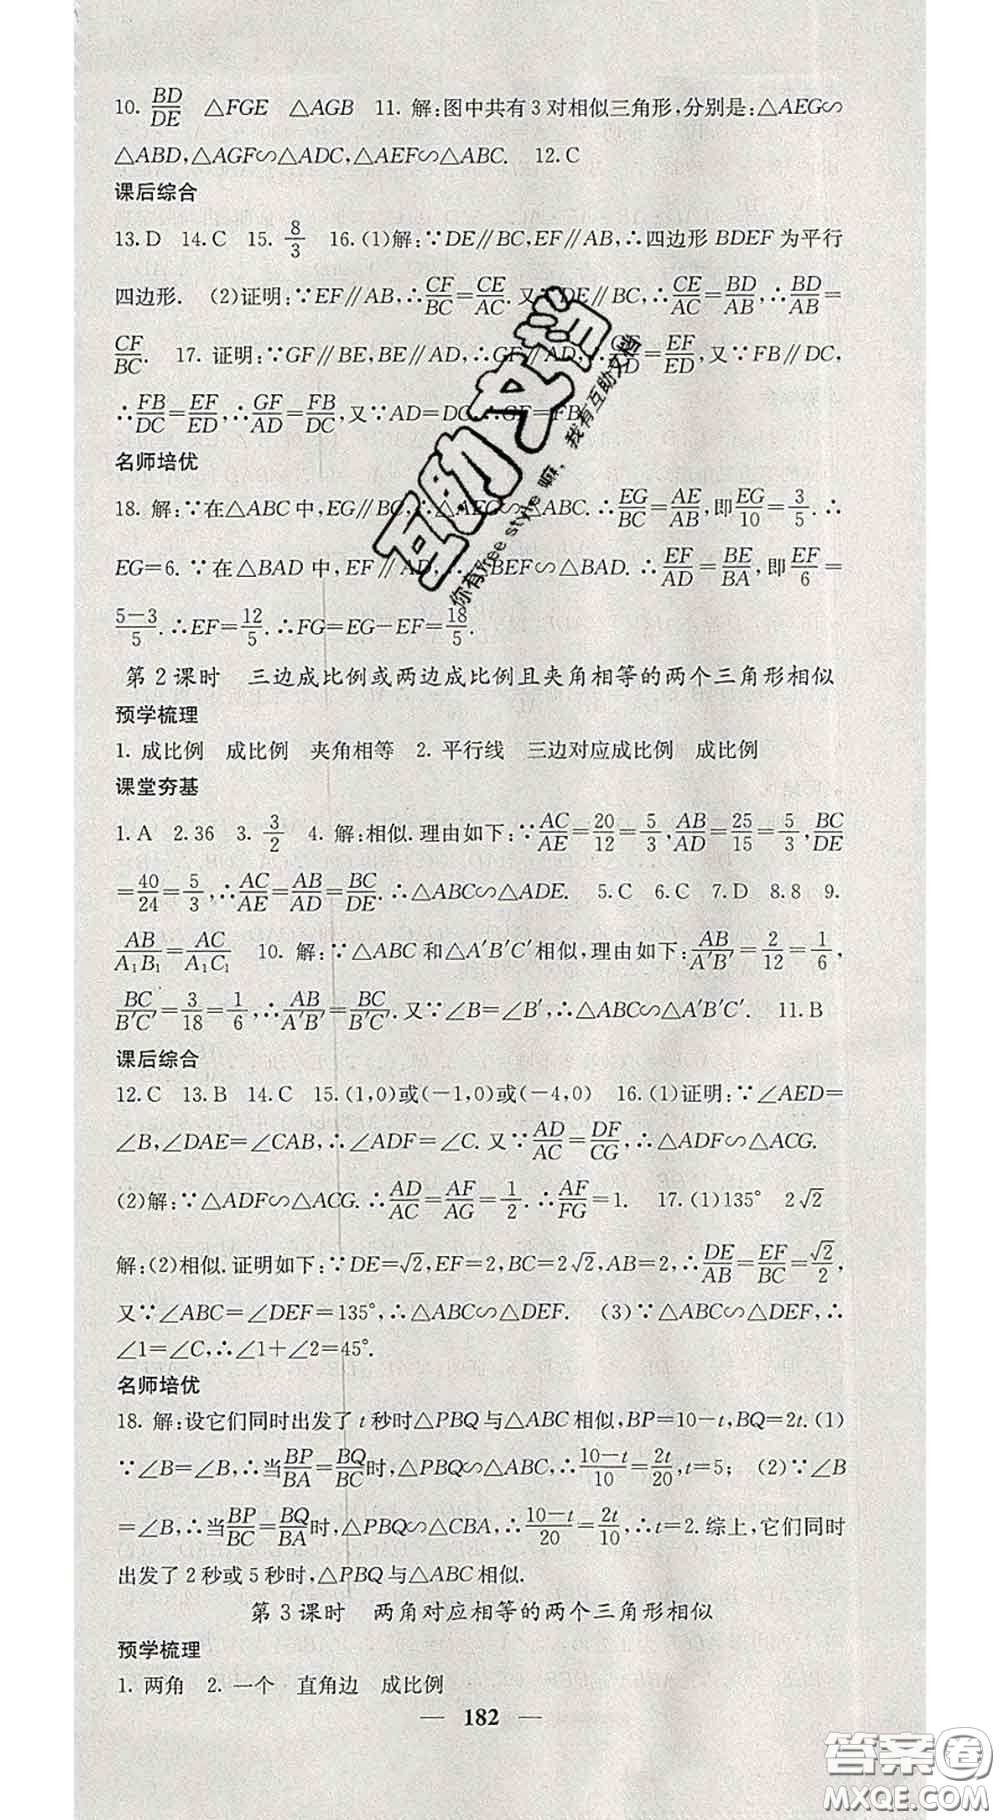 10. BD/DE　△FGE　△AGB　11. 解:图中共有3对相似三角形,分别是:△AEG∽
△ABD,△AGF∽△ADC,△AEF∽△ABC.　12. C
课后综合
13. D　14. C　15. 8/3　16. (1)解:∵DE∥BC,EF∥AB,∴四边形BDEF为平行
四边形.　(2)证明:∵EF∥AB,∴CF/BC=CE/AC.又∵DE∥BC,∴CE/AC=BD/AB,∴BD/AB=
CF/BC.　17. 证明:∵GF∥BE,BE∥AD,∴GF∥AD,∴ /AD=EF/ED,又∵FB∥DC,
∴FB/DC=EF/ED,∴GF/AD=FB/DC,又∵AD=DC,∴GF=FB.
名师培优
18. 解:∵在△ABC中,EG∥BC,∴△AEG∽△ABC.∴EG/BC=AE/AB,即EG/10=3/5.∴
EG=6.∵在△BAD中,EF∥AD,∴△BEF∽△BAD.∴EF/AD=BE/BA,即EF/6=
(5-3)/5.∴EF=12/5.∴FG=EG-EF=18/5.
第2课时　三边成比例或两边成比例且夹角相等的两个三角形相似
预学梳理
1. 成比例　成比例　夹角相等　2. 平行线　三边对应成比例　成比例
课堂夯基
1. A　2. 36　3. 3/2　4. 解:相似.理由如下:∵AC/AE=20/12=5/3,AB/AD=25/15=5/3,BC/DE
=40/24=5/3,∴AC/AE=AB/AD=BC/DE.∴△ABC∽△ADE.　5. C　6. C　7. D　8. 8　9.
AB/A₁B₁=AC/A₁C₁　10. 解:∵△ABC和△A′B′C′相似,理由如下:AB/A′B′=2/12=1/6,
BC/B′C′=3/18=1/6,∴AB/A′B′=BC/B′C′.又∵∠B=∠B′,∴△ABC∽△A′B′C′.　11. B
课后综合
12. C　13. B　14. C　15. (1,0)或(-1,0)或(-4,0)　16. (1)证明:∵∠AED=
∠B,∠DAE=∠CAB,∴∠ADF=∠C.又∵AD/AC=DF/CG,∴△ADF∽△ACG.
(2)解:∵△ADF∽△ACG.∴AD/AC=AF/AG=1/2.∴AF/FG=1.　17. (1)135°　2√2
解:(2)相似.证明如下:∵DE=√2,EF=2,BC=2√2,AB=2,∴DE/AB=EF/BC=√2/2,
又∵∠ABC=∠DEF=135°,∴△ABC∽△DEF.　(3)∵△ABC∽△DEF,∴
∠1=∠C,∴∠1+∠2=45°.
名师培优
18. 解:设它们同时出发了t秒时△PBQ与△ABC相似,BP=10-t,BQ=2t.(1)
∵∠B=∠B,∴当BP/BA=BQ/BC时,△PBQ∽△ABC,∴(10-t)/10=2t/20,t=5;　(2)∵∠B
=∠B,∴当BP/BC=BQ/BA时,△PBQ∽△CBA,∴(10-t)/20=2t/10,∴t=2.综上,它们同时
出发了2秒或5秒时,△PBQ与△ABC相似.
第3课时　两角对应相等的两个三角形相似
预学梳理
1. 两角　2. 一个　直角边　成比例
— 182 —
互助文档
你有free style嘛,我有互助文档
答案圈
MXQE.COM